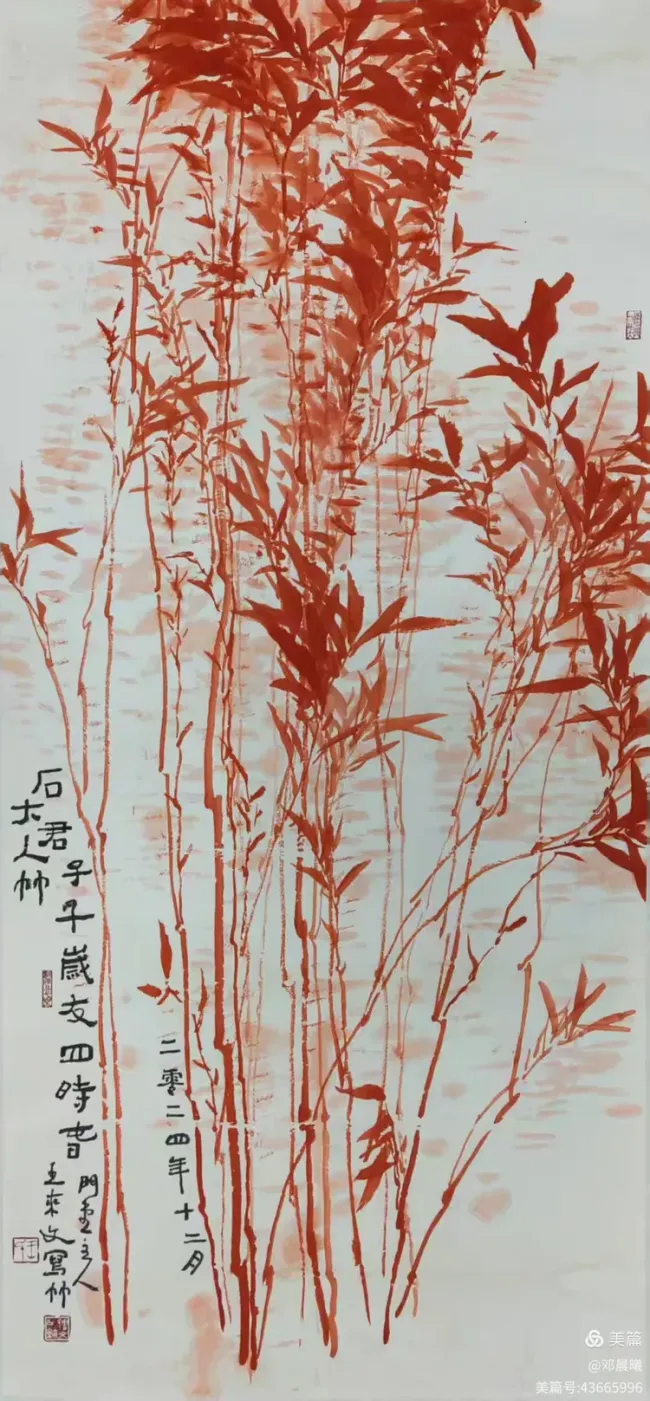 石大人竹
君子千歲友四時春
王來文寫竹
二零二四年十二月
美篇
@邓晨曦
美篇号:43665996